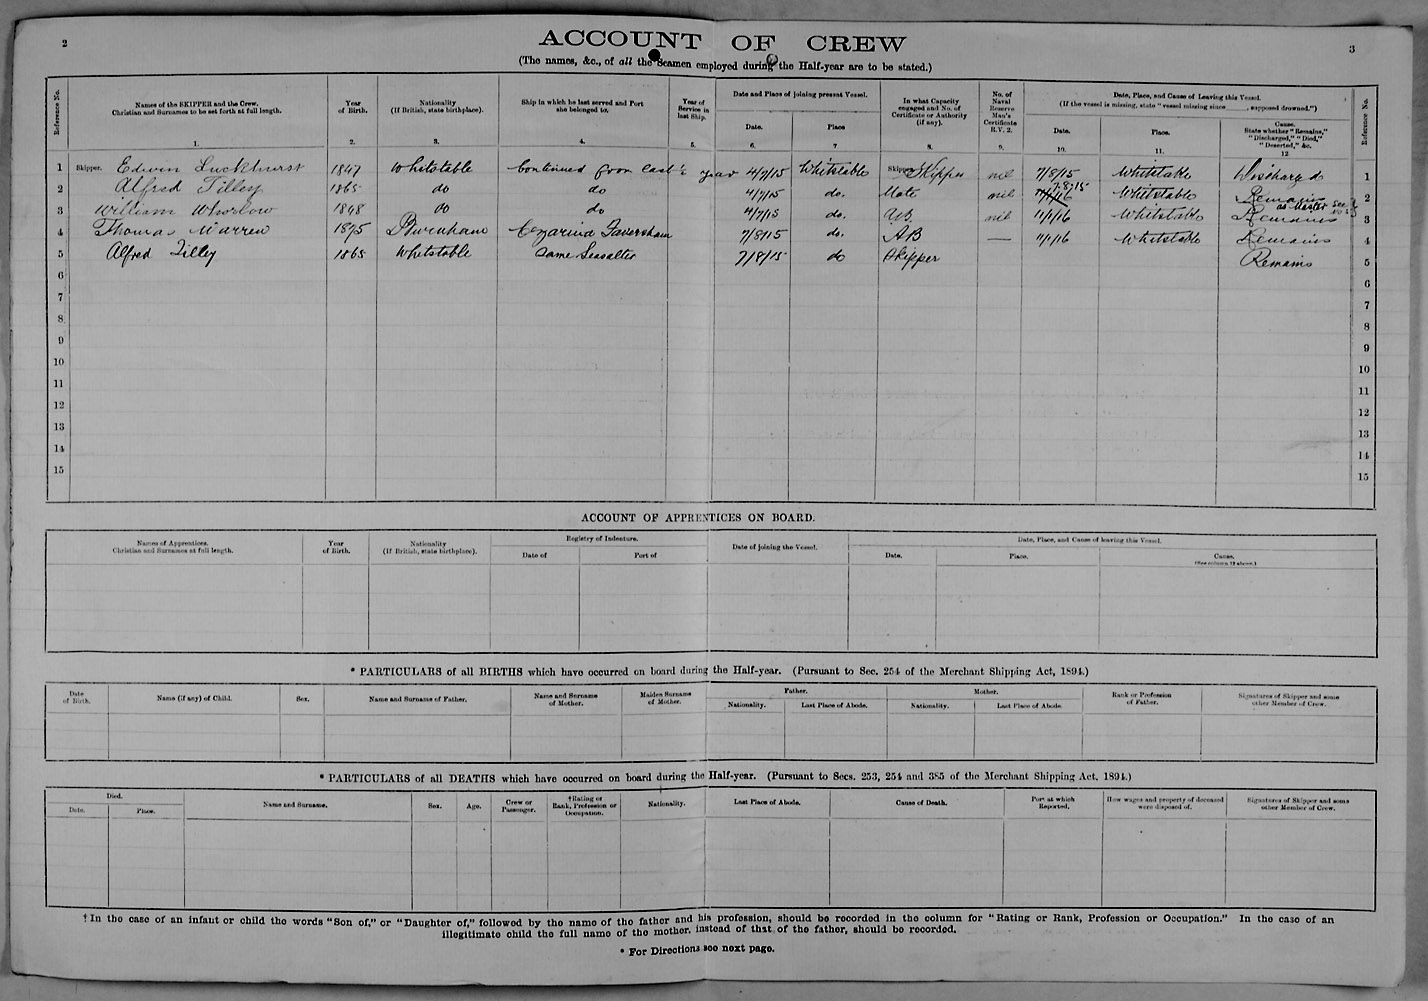 2
3
ACCOUNT OF CREW
(The names, &c., of all the Seamen employed during the Half-year are to be stated.)
Reference No.
Names of the SKIPPER and the Crew.
Christian and Surnames to be set forth at full length.
1.
Year of Birth.
2.
Nationality
(If British, state birthplace).
3.
Ship in which he last served and Port she belonged to.
4.
Year of Service in last Ship.
5.
Date and Place of joining present Vessel.
Date.
6.
Place
7
In what Capacity engaged and No. of Certificate or Authority (if any).
8.
No. of Naval Reserve Man's Certificate R.V. 2.
9.
Date, Place, and Cause of Leaving this Vessel.
(If the vessel is missing, state "vessel missing since ____, supposed drowned.")
Date.
10.
Place.
11.
Cause.
State whether "Remains," "Discharged," "Died," "Deserted," &c.
12
Reference No.
1 Skipper. Edwin Luckhurst 1847 Whitstable Continued from last ½ year 4/7/15 Whitstable Skipper Skipper nil 7/8/15 Whitstable Discharged 1
2 Alfred Tilley 1865 do do 4/7/15 do. Mate nil 11/1/16 7.8.15 Whitstable Remains as Master See No 5 2
3 William Whorlow 1848 do do 4/7/15 do. AB nil 11/1/16 Whitstable Remains 3
4 Thomas Warren 1895 Burnham Czarina Faversham 7/8/15 do. AB — 11/1/16 Whitstable Remains 4
5 Alfred Tilley 1865 Whitstable Same Seasalter 7/8/15 do Skipper Remains 5
6
7 7
8 8
9 9
10 10
11 11
12 12
13 13
14 14
15 15
ACCOUNT OF APPRENTICES ON BOARD.
Names of Apprentices.
Christian and Surnames at full length.
Year of Birth.
Nationality
(If British, state birthplace).
Registry of Indenture.
Date of
Port of
Date of joining the Vessel.
Date, Place, and Cause of leaving this Vessel.
Date.
Place.
Cause.
(See column 12 above.)
* PARTICULARS of all BIRTHS which have occurred on board during the Half-year. (Pursuant to Sec. 254 of the Merchant Shipping Act, 1894.)
Date of Birth.
Name (if any) of Child.
Sex.
Name and Surname of Father.
Name and Surname of Mother.
Maiden Surname of Mother.
Father.
Nationality.
Last Place of Abode.
Mother.
Nationality.
Last Place of Abode.
Rank or Profession of Father.
Signatures of Skipper and some other Member of Crew.
* PARTICULARS of all DEATHS which have occurred on board during the Half-year. (Pursuant to Secs. 253, 254 and 385 of the Merchant Shipping Act, 1894.)
Died.
Date.
Place.
Name and Surname.
Sex.
Age.
Crew or Passenger.
†Rating or Rank, Profession or Occupation.
Nationality.
Last Place of Abode.
Cause of Death.
Port at which Reported.
How wages and property of deceased were disposed of.
Signatures of Skipper and some other Member of Crew.
† In the case of an infant or child the words "Son of," or "Daughter of," followed by the name of the father and his profession, should be recorded in the column for "Rating or Rank, Profession or Occupation." In the case of an
illegitimate child the full name of the mother, instead of that of the father, should be recorded.
* For Directions see next page.